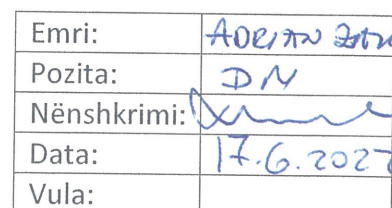 Emri: ADRIAN
Pozita: DN
Nënshkrimi:
Data: 17.6.202
Vula: